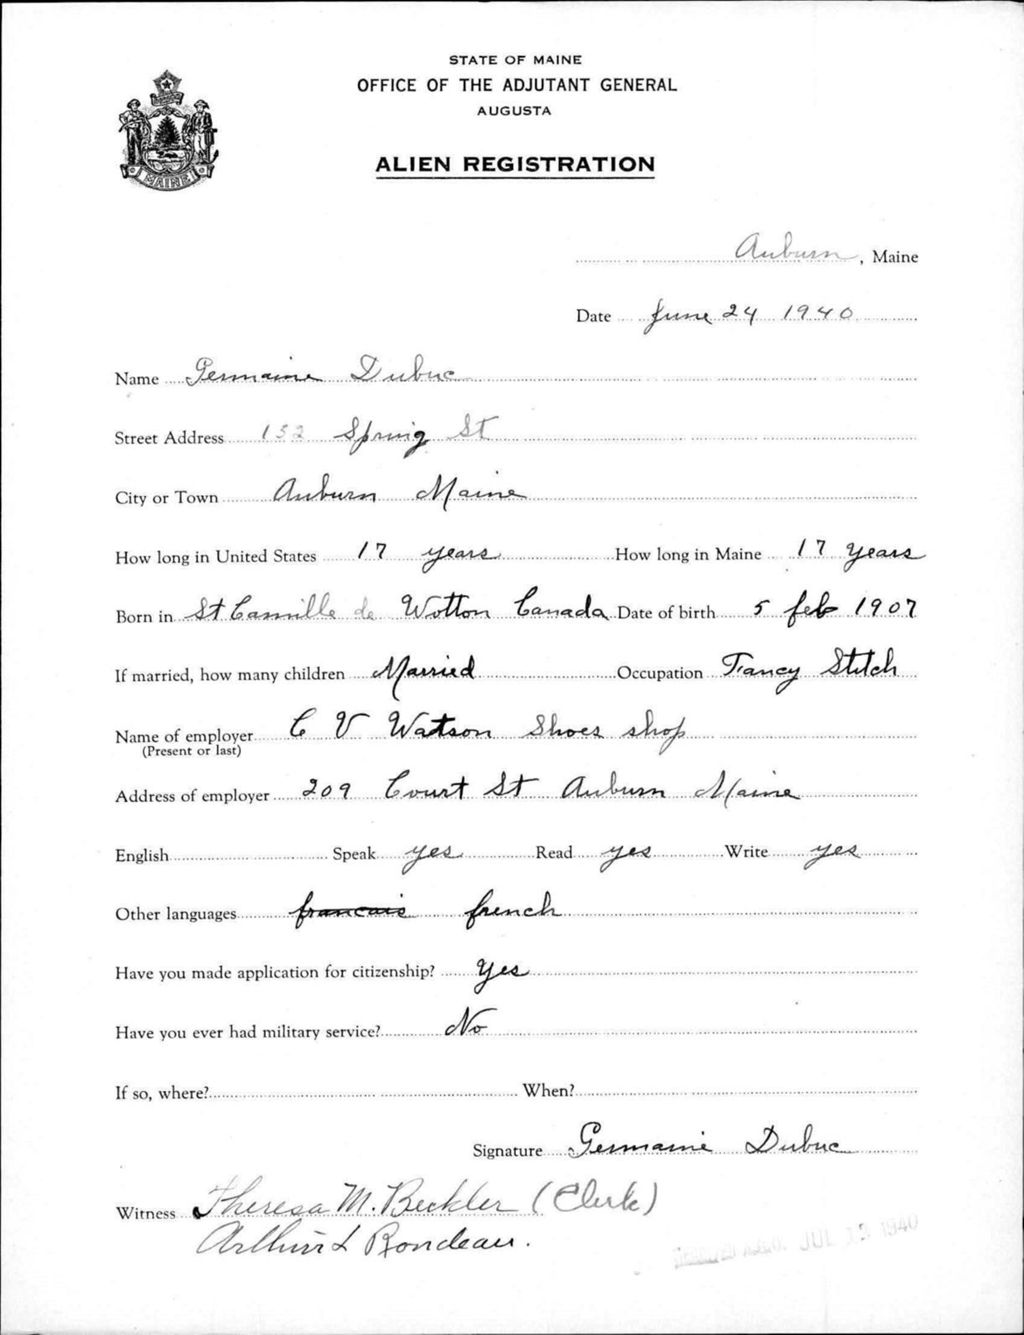 STATE OF MAINE
OFFICE OF THE ADJUTANT GENERAL
AUGUSTA
ALIEN REGISTRATION
MAINE
Auburn, Maine
Date June 24 1940
Name Germaine Dubuc
Street Address 132 Spring St
City or Town Auburn Maine
How long in United States 17 years How long in Maine 17 years
Born in St Camille de Wotton Canada Date of birth 5 feb 1907
If married, how many children Married Occupation Fancy Stitch
Name of employer C V Watson Shoes shop
(Present or last)
Address of employer 209 Court St Auburn Maine
English Speak yes Read yes Write yes
Other languages francais french
Have you made application for citizenship? Yes
Have you ever had military service? No
If so, where? When?
Signature Germaine Dubuc
Witness Theresa M. Beckler (Clerk)
Arthur L Rondeau.
JUL 1940